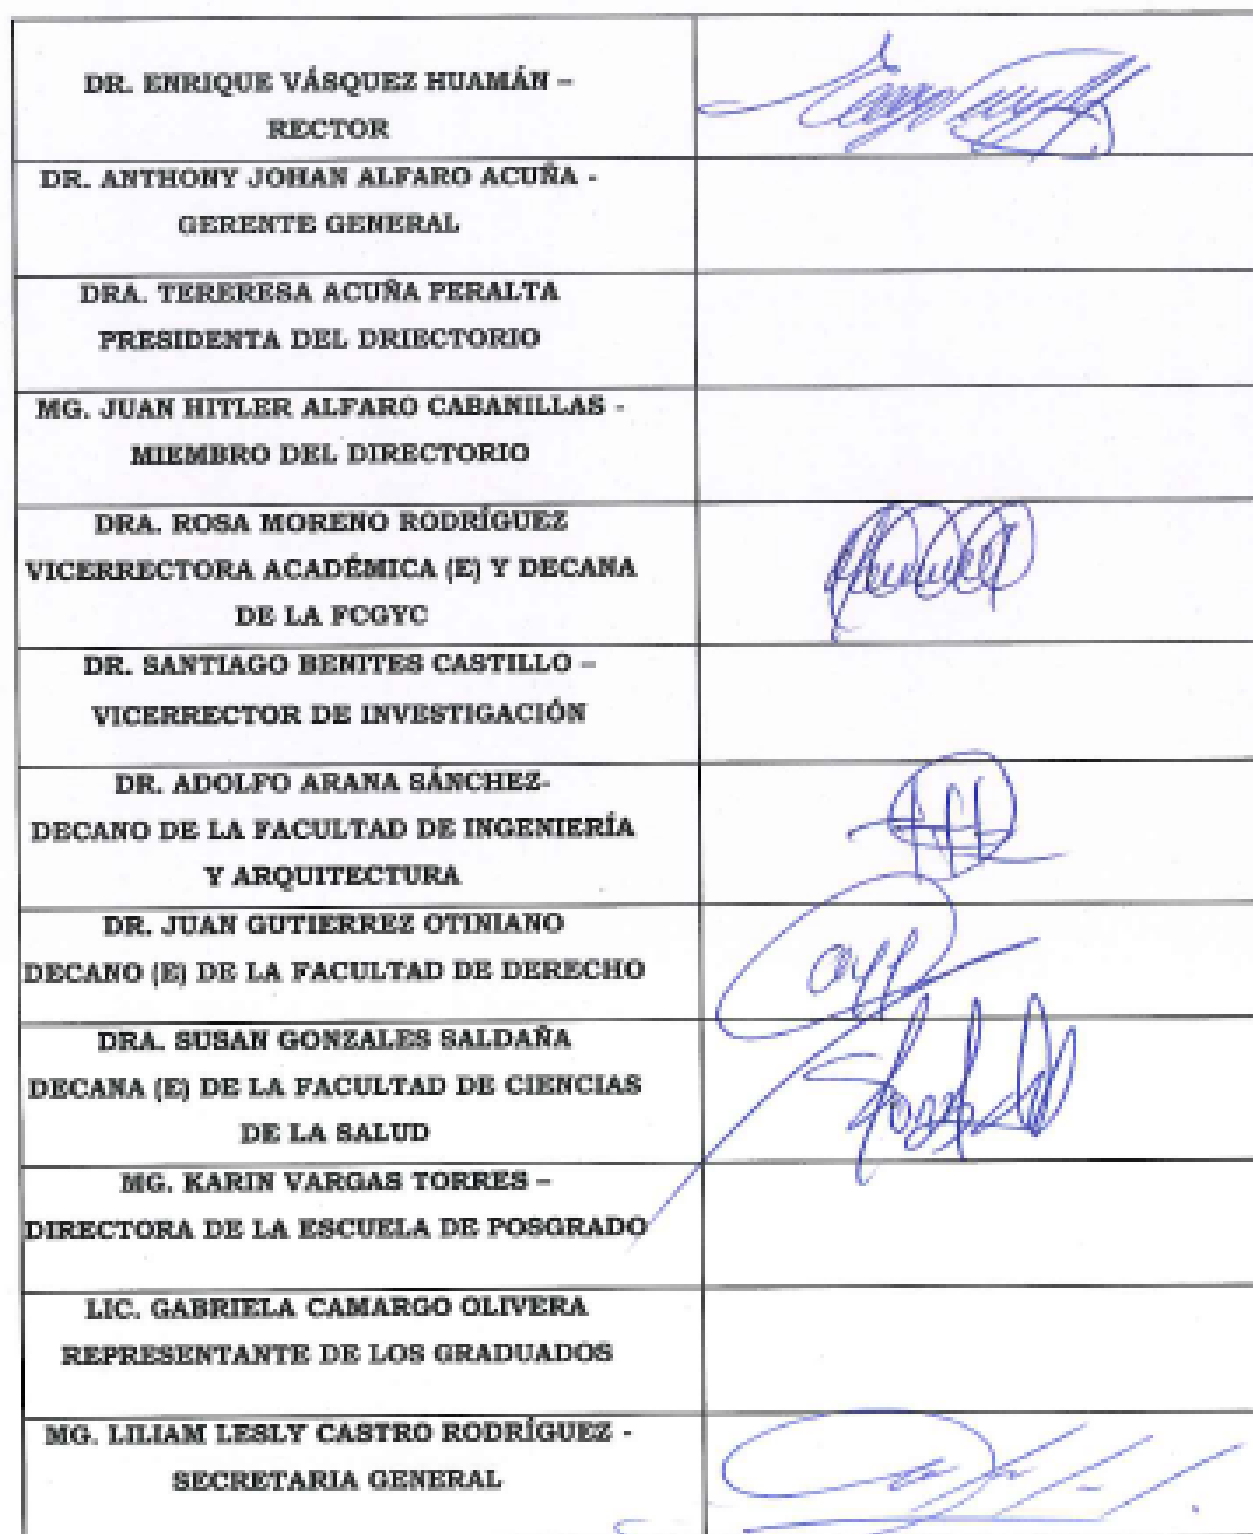 DR. ENRIQUE VÁSQUEZ HUAMÁN –
RECTOR
DR. ANTHONY JOHAN ALFARO ACUÑA -
GERENTE GENERAL
DRA. TERERESA ACUÑA PERALTA
PRESIDENTA DEL DRIECTORIO
MG. JUAN HITLER ALFARO CABANILLAS -
MIEMBRO DEL DIRECTORIO
DRA. ROSA MORENO RODRÍGUEZ
VICERRECTORA ACADÉMICA (E) Y DECANA
DE LA FCGYC
DR. SANTIAGO BENITES CASTILLO –
VICERRECTOR DE INVESTIGACIÓN
DR. ADOLFO ARANA SÁNCHEZ-
DECANO DE LA FACULTAD DE INGENIERÍA
Y ARQUITECTURA
DR. JUAN GUTIERREZ OTINIANO
DECANO (E) DE LA FACULTAD DE DERECHO
DRA. SUSAN GONZALES SALDAÑA
DECANA (E) DE LA FACULTAD DE CIENCIAS
DE LA SALUD
MG. KARIN VARGAS TORRES –
DIRECTORA DE LA ESCUELA DE POSGRADO
LIC. GABRIELA CAMARGO OLIVERA
REPRESENTANTE DE LOS GRADUADOS
MG. LILIAM LESLY CASTRO RODRÍGUEZ -
SECRETARIA GENERAL